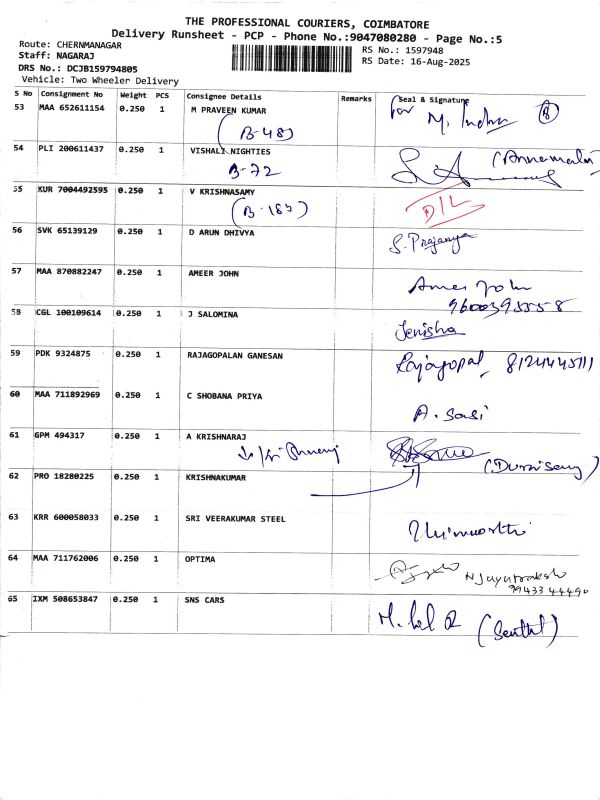 THE PROFESSIONAL COURIERS, COIMBATORE
Delivery Runsheet - PCP - Phone No.:9047080280 - Page No.:5
Route: CHERNMANAGAR
Staff: NAGARAJ
DRS No.: DCJB159794805
Vehicle: Two Wheeler Delivery
RS No.: 1597948
RS Date: 16-Aug-2025
S No Consignment No Weight PCS Consignee Details Remarks Seal & Signature
53 MAA 652611154 0.250 1 M PRAVEEN KUMAR for M. Indhu
(B-48)
54 PLI 200611437 0.250 1 VISHALI NIGHTIES (Annamalai)
B-72
55 KUR 7004492595 0.250 1 V KRISHNASAMY D/L
(B-185)
56 SVK 65139129 0.250 1 D ARUN DHIVYA S. Prajanya
57 MAA 870882247 0.250 1 AMEER JOHN Ameer John
9600395558
58 CGL 100109614 0.250 1 J SALOMINA Jenisha
59 PDK 9324875 0.250 1 RAJAGOPALAN GANESAN Rajagopal 8124445111
60 MAA 711892969 0.250 1 C SHOBANA PRIYA A. Sasi
61 GPM 494317 0.250 1 A KRISHNARAJ (Duraisamy)
62 PRO 18280225 0.250 1 KRISHNAKUMAR
63 KRR 600058033 0.250 1 SRI VEERAKUMAR STEEL
64 MAA 711762006 0.250 1 OPTIMA N Jayaprakash
9943344490
65 IXM 508653847 0.250 1 SNS CARS (Senthil)